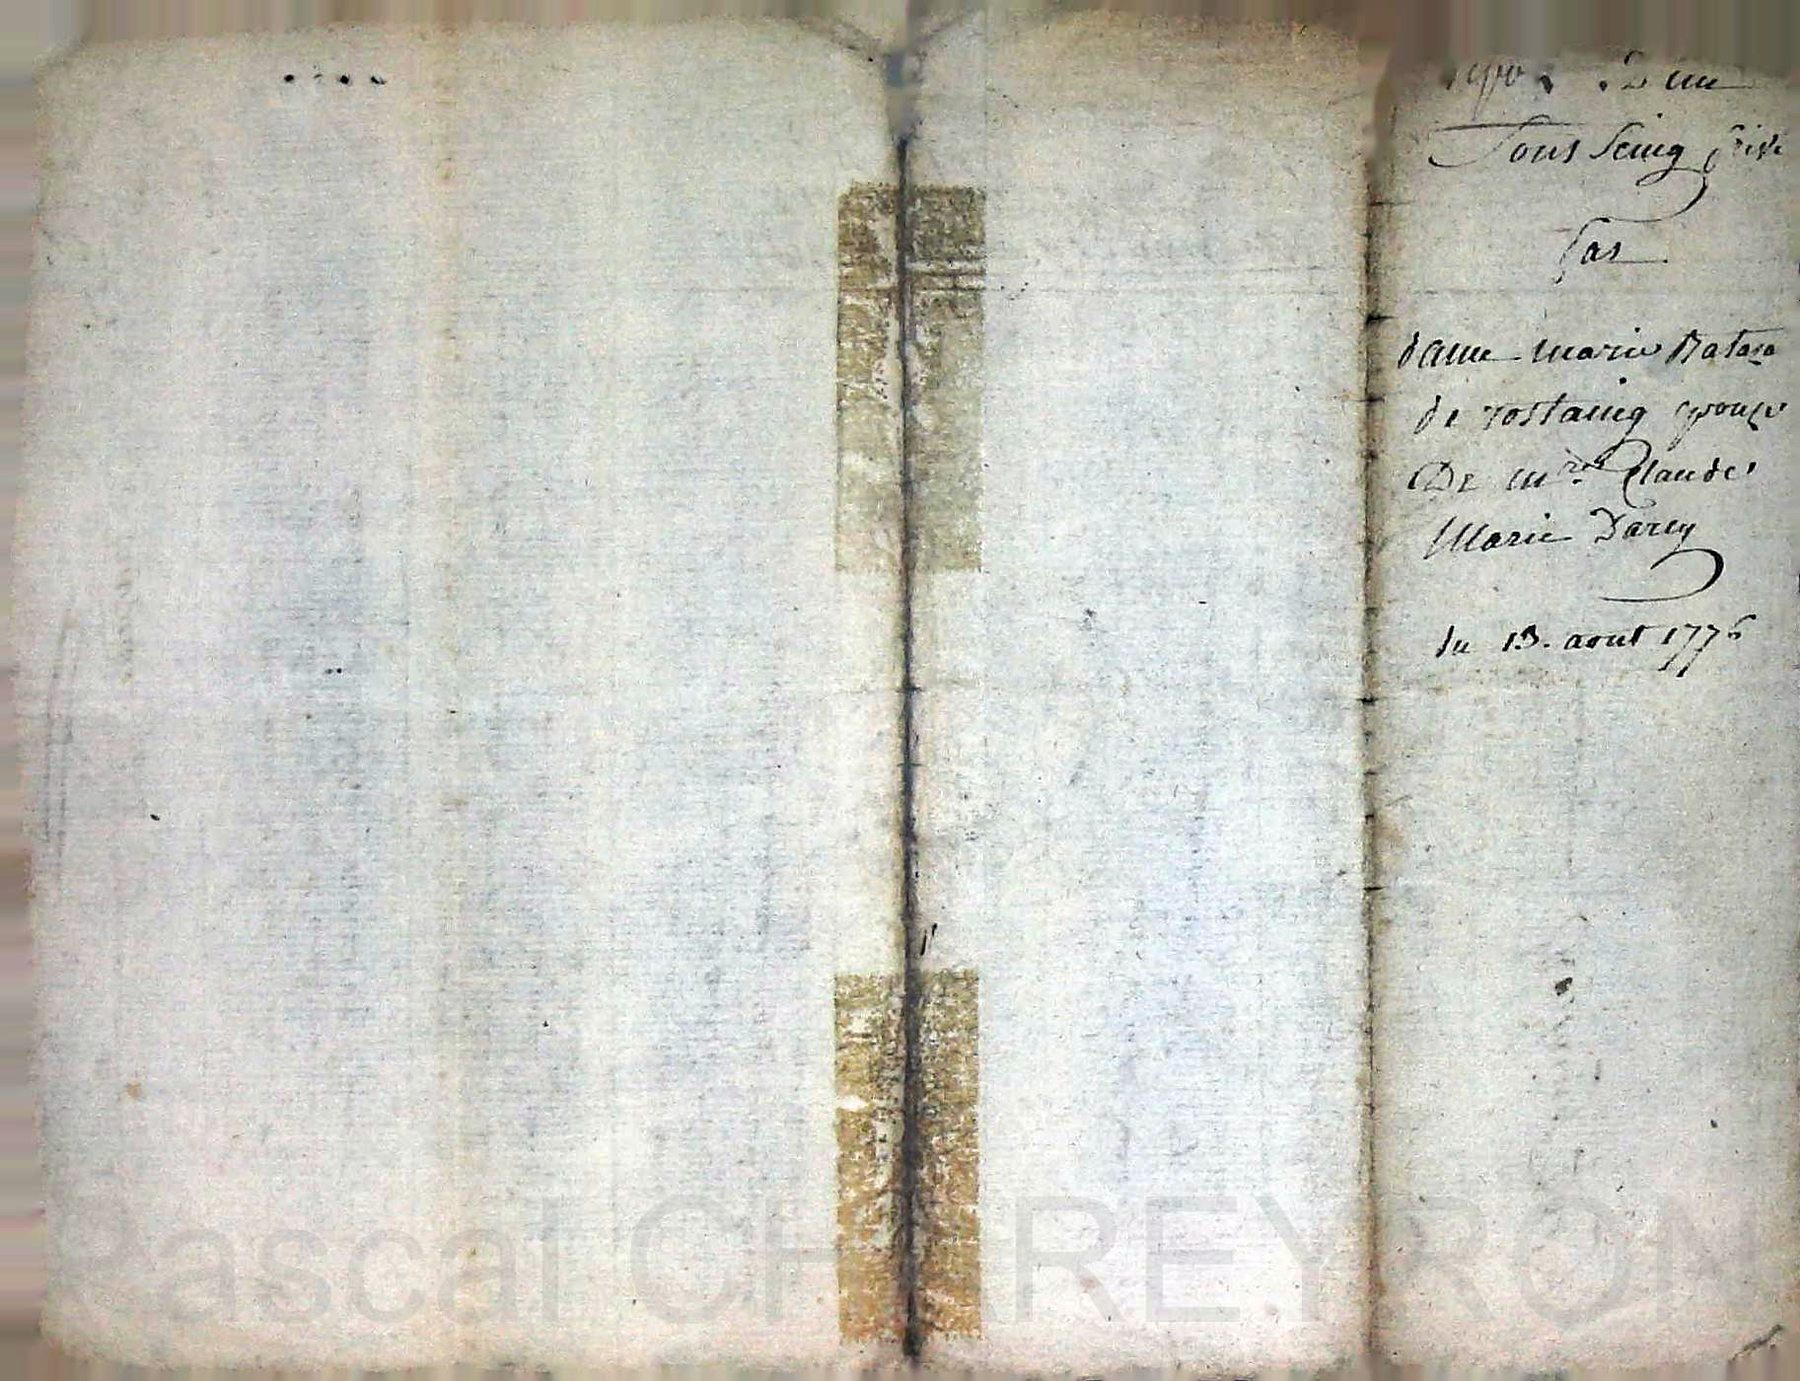 d'un
Sous Seing privé
Par
dame marie
de rostaing epouze
De mre Claude
Marie Darcy
du 13. aout 1776
Pascal CHAREYRON